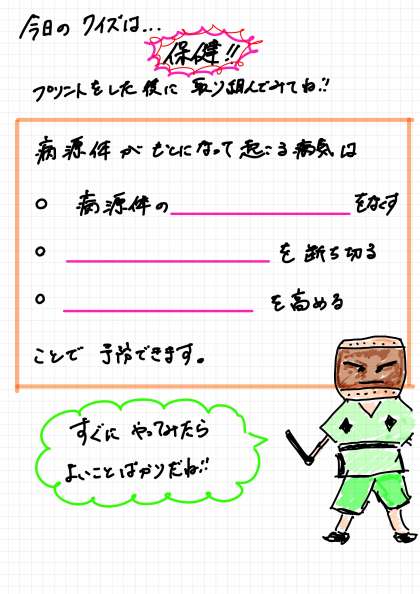 今日の クイズは...
保健!!
プリントをした後に 取り組んでみてね!!
病源体が もとになって起こる病気は
○ 病源体の＿＿＿＿＿＿をなくす
○ ＿＿＿＿＿＿を断ち切る
○ ＿＿＿＿＿＿を高める
ことで 予防できます。
すぐに やってみたら
よいことばかりだね!!